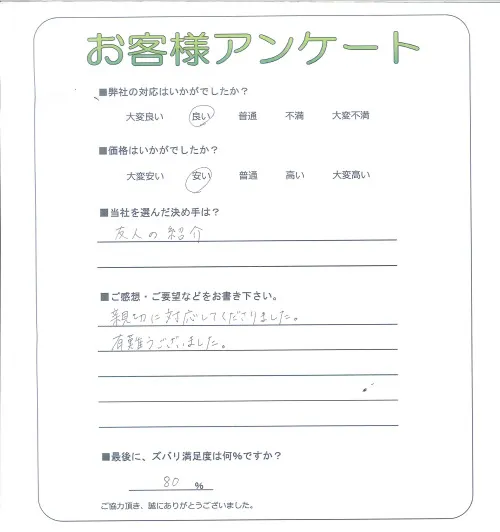 お客様アンケート
■弊社の対応はいかがでしたか？
大変良い 良い 普通 不満 大変不満
■価格はいかがでしたか？
大変安い 安い 普通 高い 大変高い
■当社を選んだ決め手は？
友人の紹介
■ご感想・ご要望などをお書き下さい。
親切に対応してくださりました。
有難うございました。
■最後に、ズバリ満足度は何%ですか？
80 %
ご協力頂き、誠にありがとうございました。